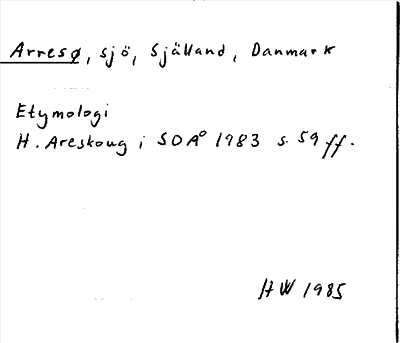 Arresø, sjö, Själland, Danmark
Etymologi
H. Areskoug i SOÅ 1983 s. 59 ff.
HW 1985